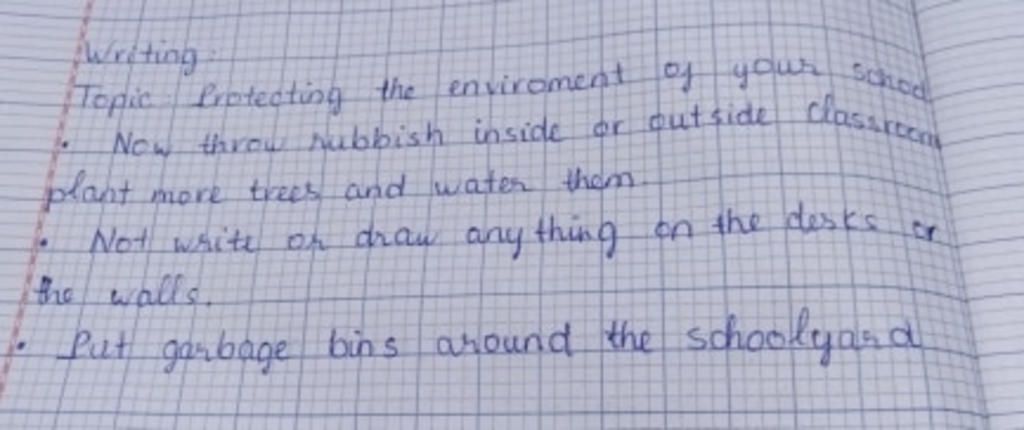 Writing:
Topic: Protecting the enviroment of your school
• Now throw rubbish inside or outside classroom
plant more trees and water them
• Not write or draw any thing on the desks or
the walls.
• Put garbage bins around the schoolyard